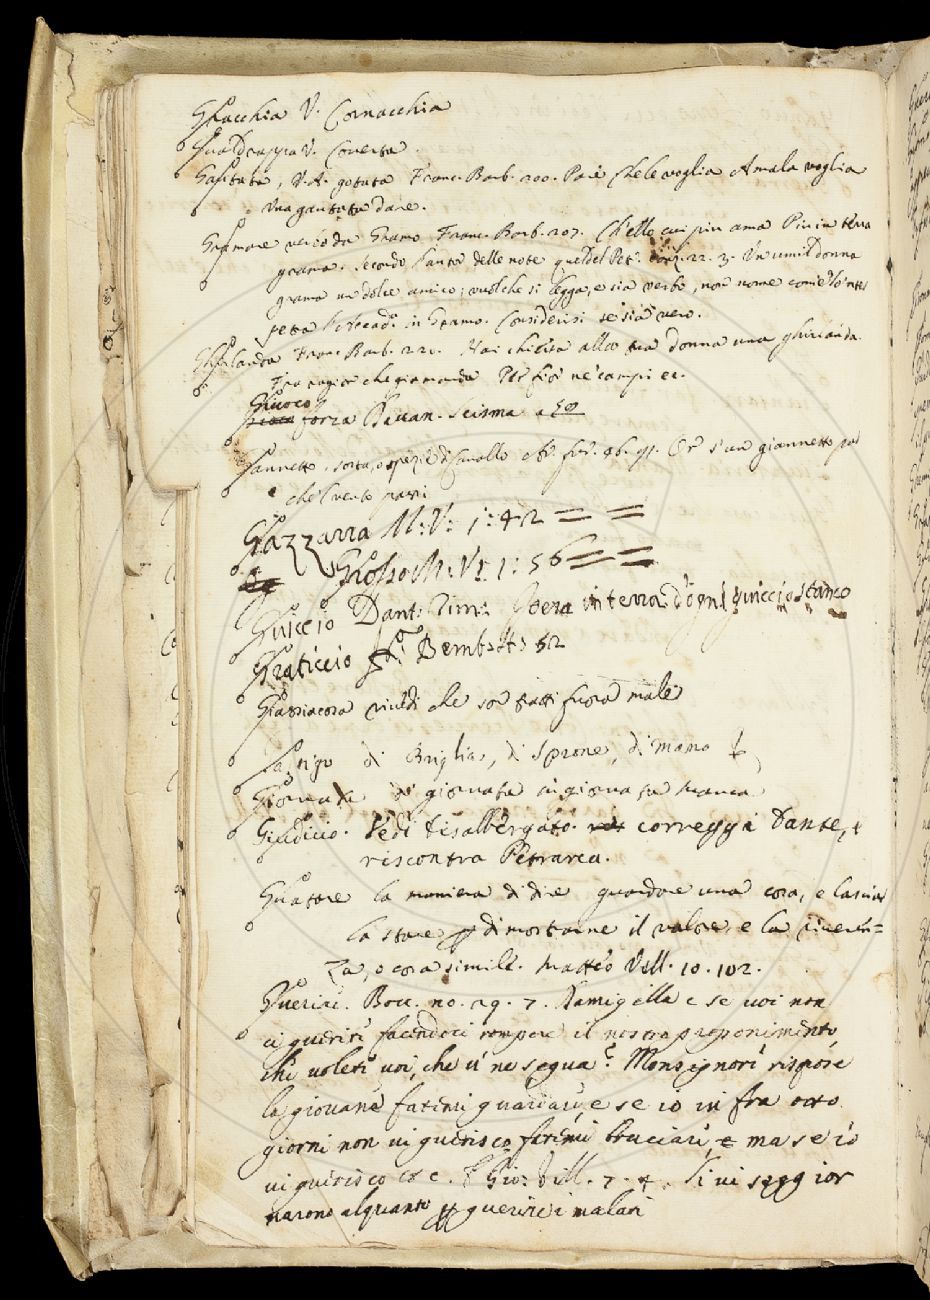 Ghacchia V. Cornacchia
Gualdrappa V. Coverta.
Gautata, V.A. gotata Franc. Barb. 200. Pare che le voglia A mala voglia
Una gautata dare.
Gramare verbo da Gramo Franc. Barb. 207. Ch'ello cui piu ama Piu in terra
grama. secondo l'aut. delle note quel del Pet. 22. 3. Un umil donna
grama un dolce amico; vuol che si legga, e sia verbo, non nome com'è
in Gramo. Considerisi se sia vero.
Ghirlanda Franc. Barb. 221. Hai chiesta alla tua donna una ghirlanda.
Per fior ne' campi ec.
Giuoco
forza Davan. Scisma a
Giannetto, sorta, o spezie di Cavallo Or s'un giannetto par
che 'l vento passi
Gazzarra M: V: 1: 42 = =
Grosso M: V: 1: 56 = =
Guiccio Dant: Rim: in terra d'ogni quiccio stanco
Graticcio Bemb: 52
riviedi che son fatti fuora male
Gastigo di Briglia, di Sprone, di mano
Giornata di giornata in giornata manca
Giudicio. Vedi Disalbergato. correggi Dante, e
riscontra Petrarca.
Guatare la maniera di dire guardare una cosa, e lasciar
la stare p dimostrarne il valore, e la riveren=
za, o cosa simile. Matteo Vill. 10. 102.
Guerire. Bocc. no. 29. 7. Damigella e se voi non
ci guerite facendoci rompere il nostro proponimento
che volete voi, che vi ne segua? Monsignore rispose
la giovane fatemi guardare, e se io in fra otto
giorni non vi guerisco fatemi bruciare, e ma se io
vi guerisco &c. Gio: Vill. 7. 4. Si vi soggior
narono alquanto p guerire i malati